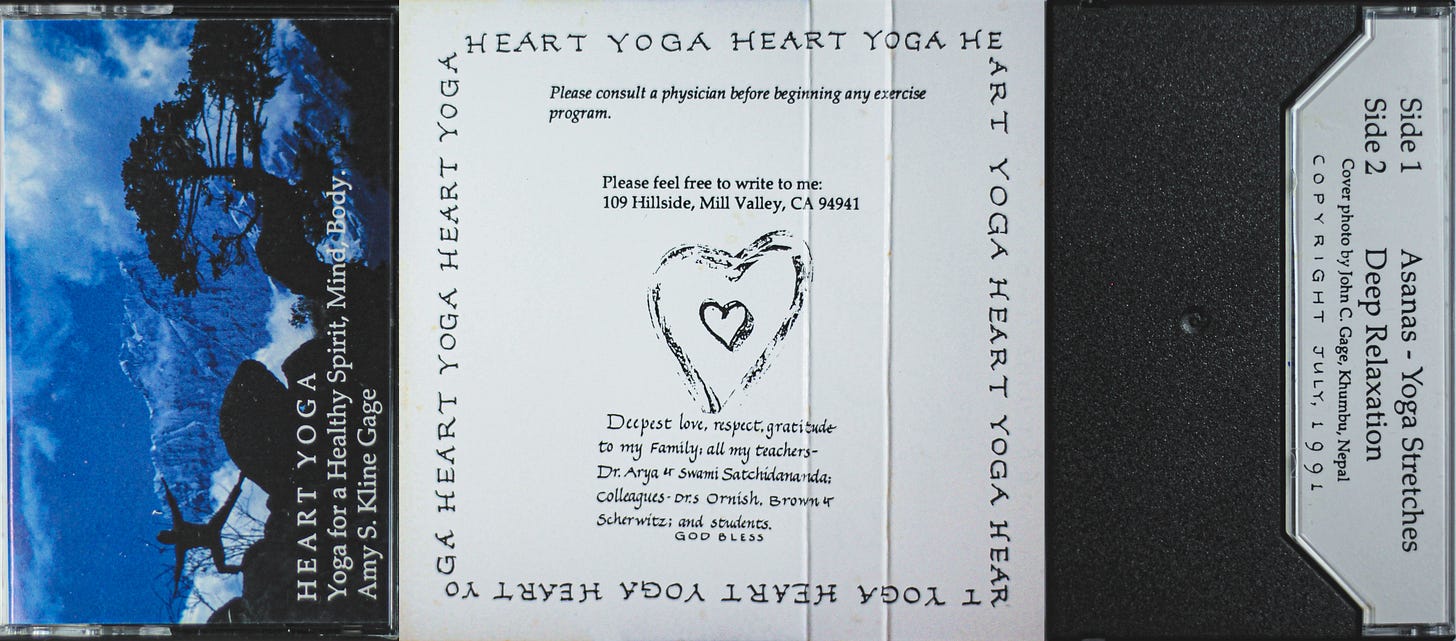 HEART YOGA
Yoga for a Healthy Spirit, Mind, Body.
Amy S. Kline Gage
HEART YOGA HEART YOGA HE
ART YOGA HEART YOGA HEAR
T YOGA HEART YOGA HEART YO
GA HEART YOGA HEART YOGA
Please consult a physician before beginning any exercise
program.
Please feel free to write to me:
109 Hillside, Mill Valley, CA 94941
Deepest love, respect, gratitude
to my Family; all my teachers-
Dr. Arya & Swami Satchidananda;
Colleagues - Drs Ornish, Brown &
Scherwitz; and students.
GOD BLESS
Side 1 Asanas - Yoga Stretches
Side 2 Deep Relaxation
Cover photo by John C. Gage, Khumbu, Nepal
COPYRIGHT JULY, 1991